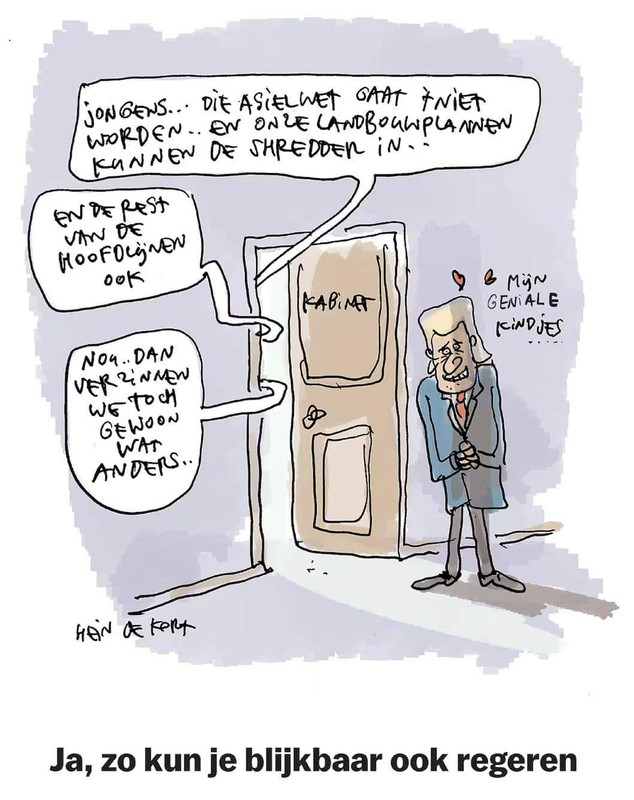 JONGENS... DIE ASIELWET GAAT 'M NIET
WORDEN.. EN ONZE LANDBOUWPLANNEN
KUNNEN DE SHREDDER IN..
EN DE REST
VAN DE
HOOFDLIJNEN
OOK
NOU.. DAN
VERZINNEN
WE TOCH
GEWOON
WAT
ANDERS..
KABINET
MIJN
GENIALE
KINDJES
.....
HEIN DE KORT
Ja, zo kun je blijkbaar ook regeren